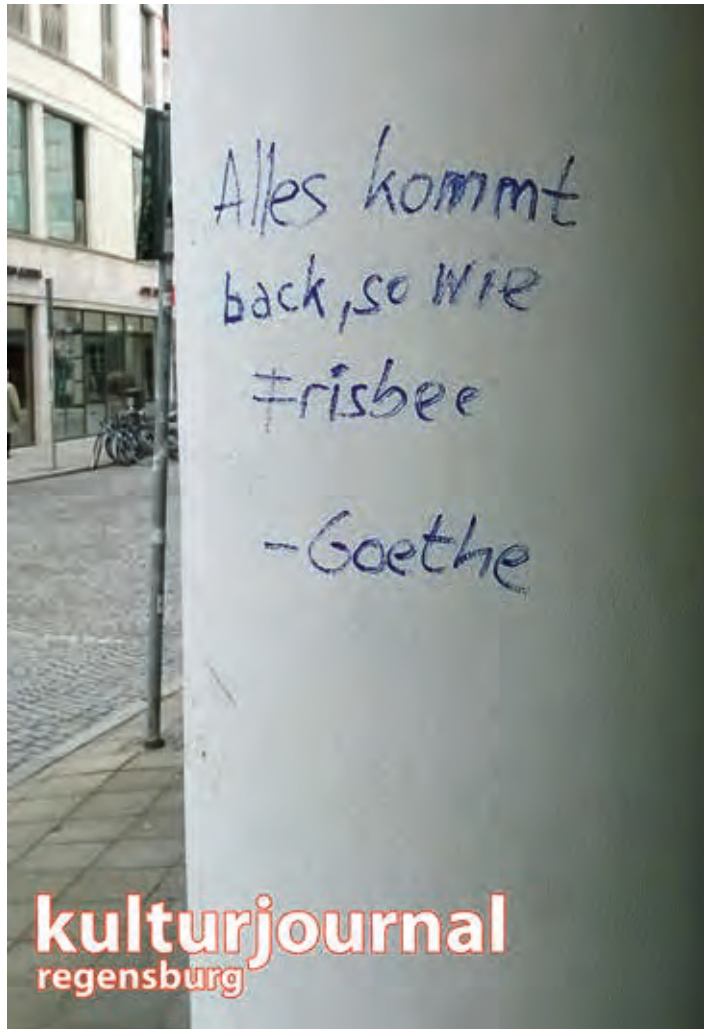 Alles kommt
back, so wie
Frisbee
-Goethe
kulturjournal
regensburg